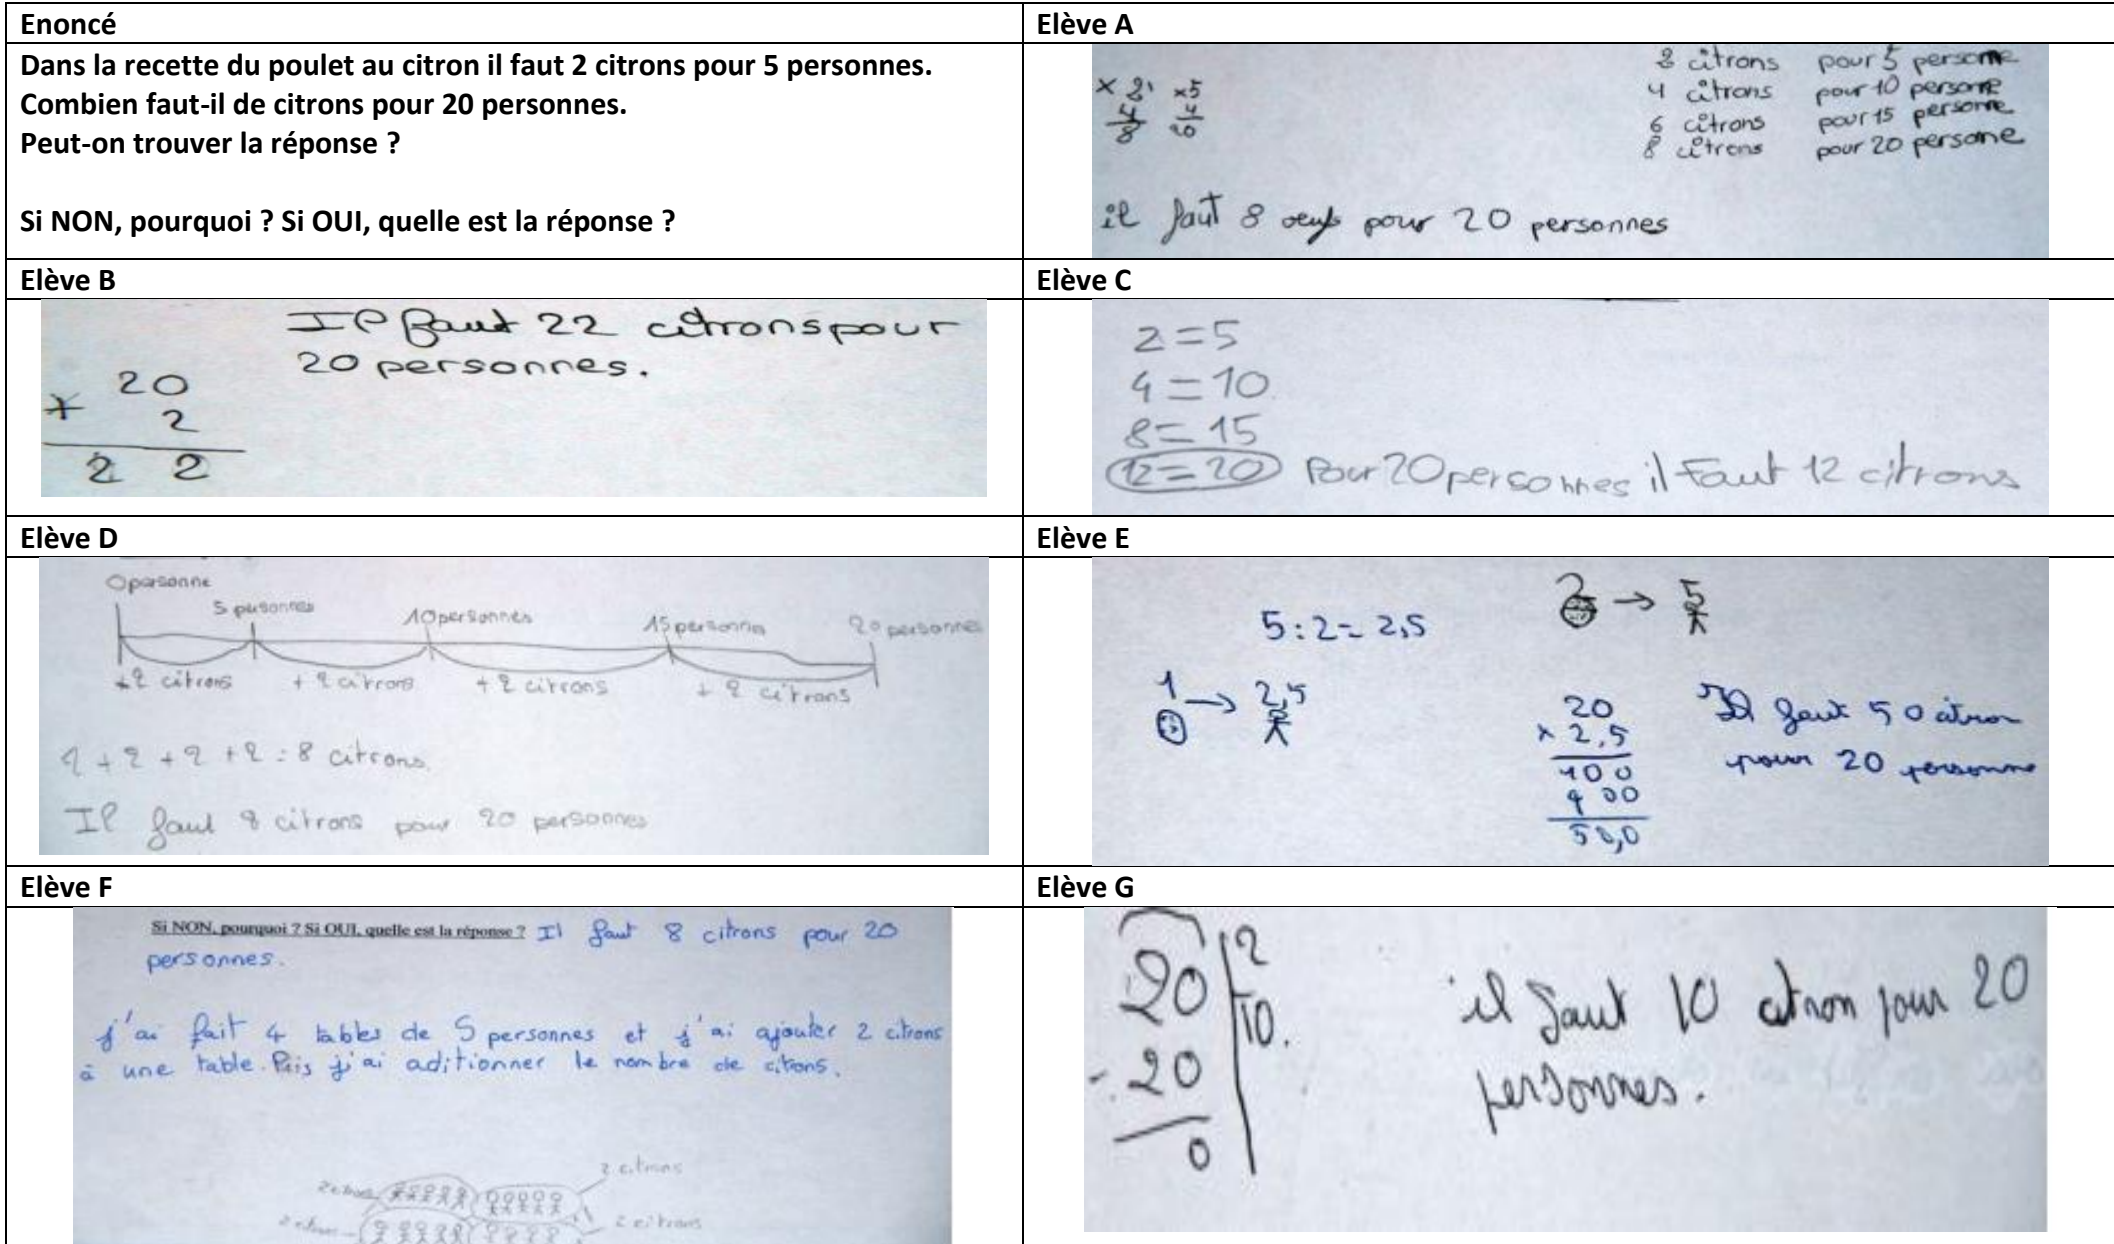 Enoncé
Dans la recette du poulet au citron il faut 2 citrons pour 5 personnes.
Combien faut-il de citrons pour 20 personnes.
Peut-on trouver la réponse ?
Si NON, pourquoi ? Si OUI, quelle est la réponse ?
Elève A
x 2 x5
4 4
8 20
2 citrons pour 5 persome
4 citrons pour 10 persome
6 citrons pour 15 persome
8 citrons pour 20 persome
il faut 8 oeufs pour 20 personnes
Elève B
Il faut 22 citrons pour
20 personnes.
20
+ 2
2 2
Elève C
2=5
4=10
8=15
12=20 Pour 20 personnes il Faut 12 citrons
Elève D
0 personne
5 personnes 10 personnes 15 personnes 20 personnes
+2 citrons + 2 citrons + 2 citrons + 2 citrons
2+2+2+2=8 citrons.
Il faut 8 citrons pour 20 personnes
Elève E
2 → 5
5:2=2,5
1 → 2,5
20
x 2,5
100
400
50,0
Il faut 50 citron
pour 20 personne
Elève F
Si NON, pourquoi ? Si OUI, quelle est la réponse ? Il faut 8 citrons pour 20
personnes.
j'ai fait 4 tables de 5 personnes et j'ai ajouter 2 citrons
à une table. Puis j'ai aditionner le nombre de citrons.
2 citrons
2 citrons
2 citrons
2 citrons
Elève G
20 2
10.
- 20
0
il faut 10 citron pour 20
personnes.